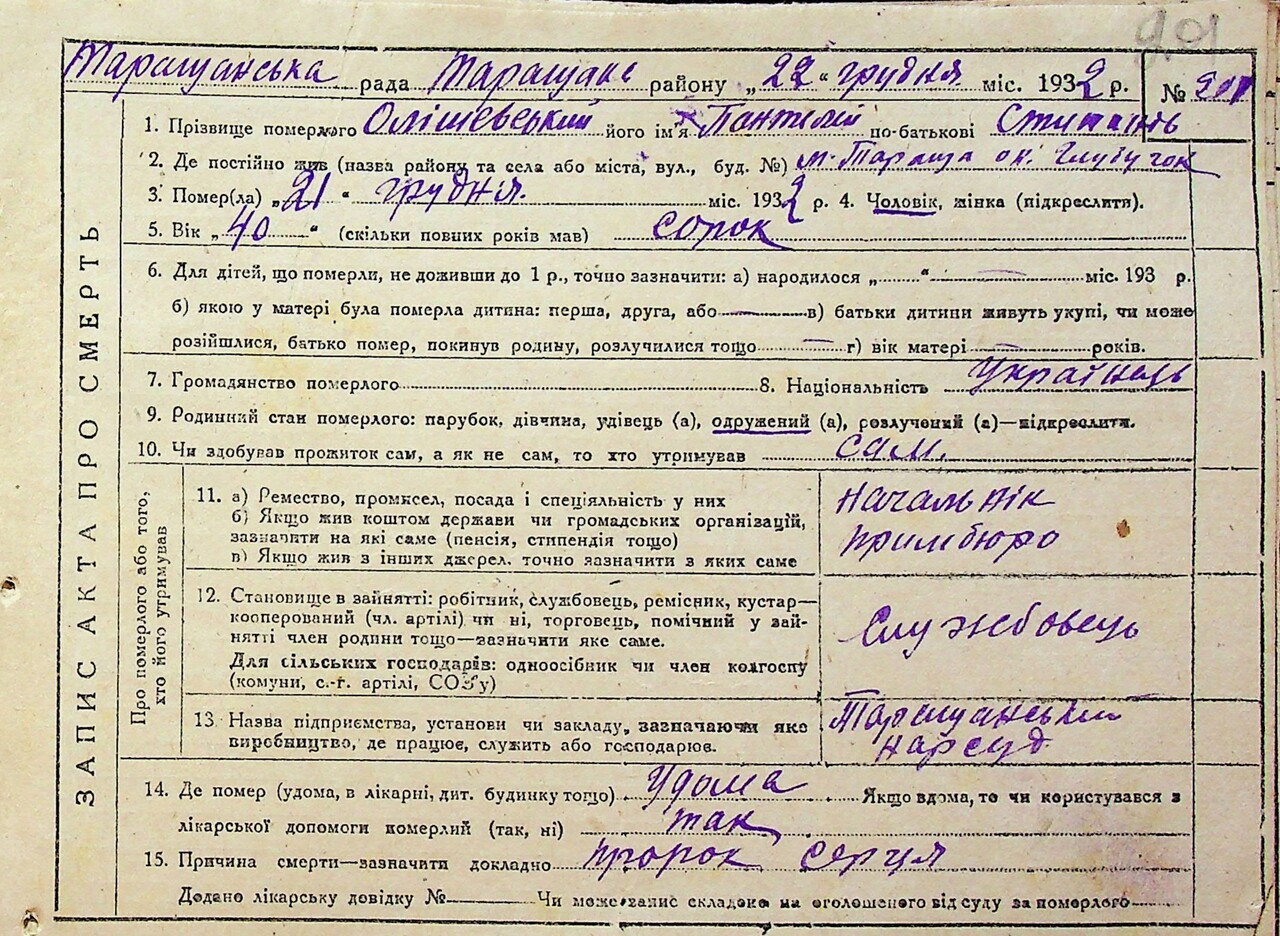 901
Таращанська рада Таращанс району „22“ грудня міс. 1932 р. № 901
1. Прізвище померлого Олішевський його ім'я Пантилій по-батькові
2. Де постійно жив (назва району та села або міста, вул., буд. №) м. Тараща ок. Глубучок
3. Помер(ла) „21“ грудня міс. 1932 р. 4. Чоловік, жінка (підкреслити).
5. Вік „40“ (скільки повних років мав) сорок
6. Для дітей, що померли, не доживши до 1 р., точно зазначити: а) народилося „ “ міс. 193 р.
б) якою у матері була померла дитина: перша, друга, або в) батьки дитини живуть укупі, чи може
розійшлися, батько помер, покинув родину, розлучилися тощо г) вік матері років.
7. Громадянство померлого 8. Національність Українець
9. Родинний стан померлого: парубок, дівчина, удівець (а), одружений (а), розлучений (а)—підкреслити.
10. Чи здобував прожиток сам, а як не сам, то хто утримував сам.
11. а) Ремество, промисел, посада і спеціяльність у них
б) Якщо жив коштом держави чи громадських організацій,
зазначити на які саме (пенсія, стипендія тощо)
в) Якщо жив з інших джерел, точно зазначити з яких саме
Начальнік
примбюро
12. Становище в зайнятті: робітник, службовець, ремісник, кустар—
кооперований (чл. артілі) чи ні, торговець, помічний у зай-
нятті член родини тощо—зазначити яке саме.
Для сільських господарів: одноосібник чи член колгоспу
(комуни, с.-г. артілі, СОЗ'у)
Службовець
13. Назва підприємства, установи чи закладу, зазначаючи яке
виробництво, де працює, служить або господарює.
Таращанський
нарсуд
14. Де помер (удома, в лікарні, дит. будинку тощо) Удома Якщо вдома, то чи користувався з
лікарської допомоги померлий (так, ні) так
15. Причина смерти—зазначити докладно пророк серця
Додано лікарську довідку № Чи може запис складено на оголошеного від суду за померлого
ЗАПИС АКТА ПРО СМЕРТЬ
Про померлого або того,
хто його утримував